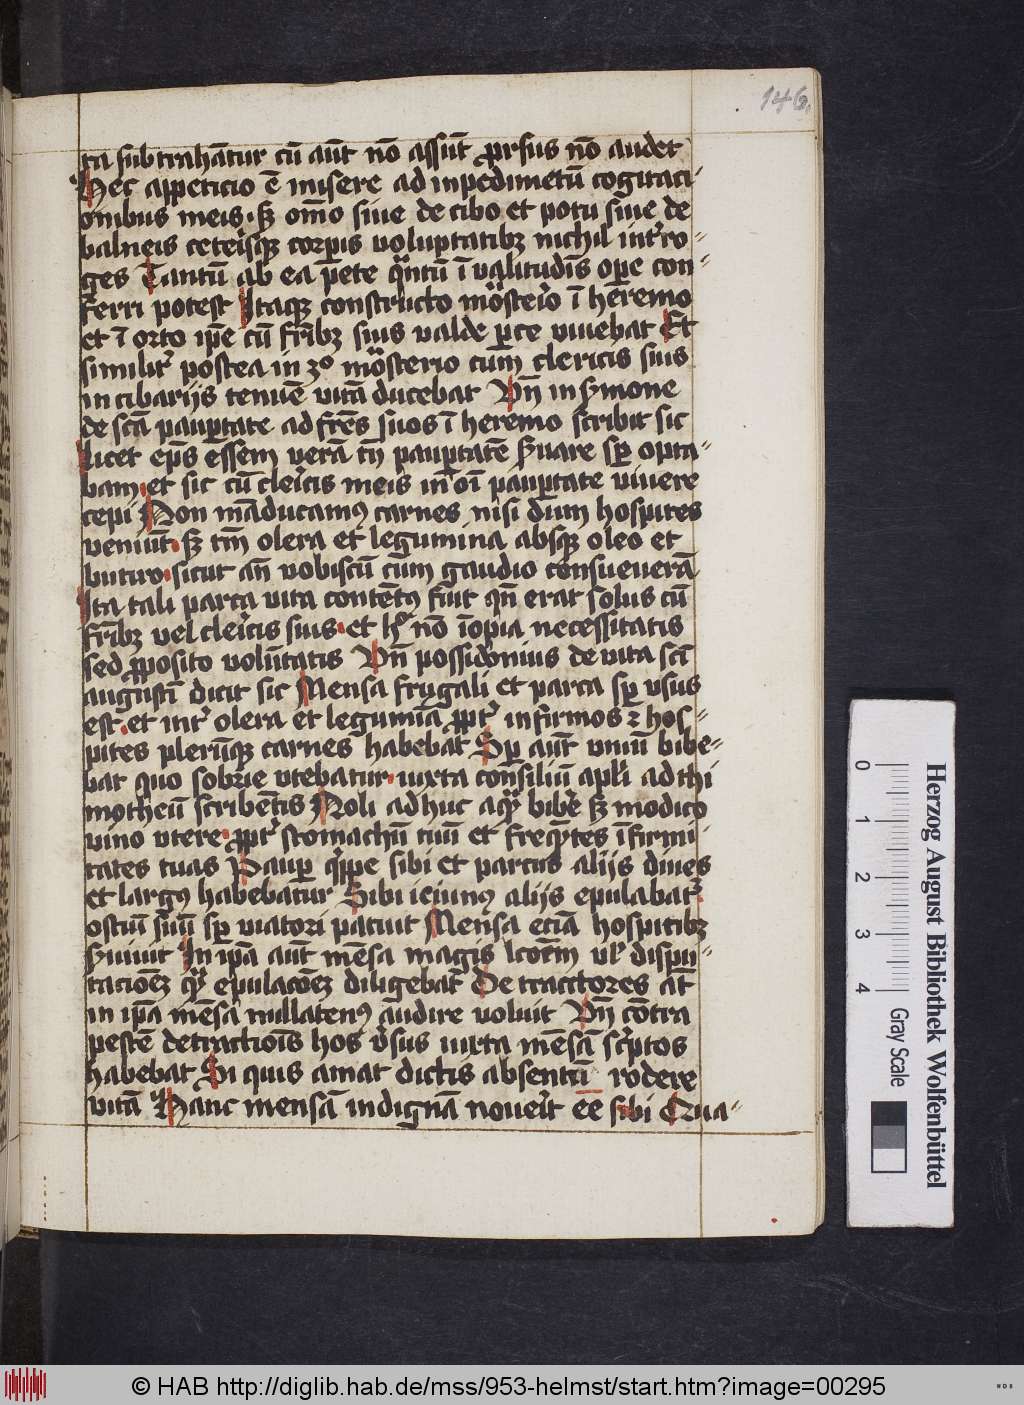 146
ta subtrahātur cū aūt nō assūt prsus nō audet
Hec appeticio ē misere ad inpedimētū cogitaci⸗
onibus meis. sꝫ om̄o siue de cibo et potu siue de
balneis ceterisqꝫ corpis voluptatibꝫ nichil int'ro⸗
ges Tantū ab ea pete qntū ī valitudīs ope con⸗
ferri potest Itaqꝫ constructo mōsterio ī heremo
et ī orto ipē cū frībꝫ suis valde pce viuebat Et
similit' postea in 2º mōsterio cum clericis suis
in cibarijs tenuē vitā ducebat Vn̄ in smone
de scā pauptate ad frēs suos ī heremo scribit sic
licet ep̄s essem verā tn̄ pauptatē suare sp opta⸗
bam. et sic cū clericis meis in oī pauptate viuere
cepi Non māducamꝰ carnes nisi dum hospites
veniūt. sꝫ tm̄ olera et legumina absqꝫ oleo et
butiro. sicut an̄ vobiscū cum gaudio consueuerā
Ita tali parca vita contētꝰ fuit qn̄ erat solus cū
frībꝫ vel clericis suis. et hͦ nō īopia necessitatis
sed pposito volūtatis Vn̄ possidonius de vita scī
augustī dicit sic Mensa frugali et parca sp vsus
est. et int' olera et legumīa ppt' infirmos ꝛ hos⸗
pites plerūqꝫ carnes habebat Sp aūt vinū bibe⸗
bat quo sobrie vtebatur. iuxta consiliū apli ad thi
motheū scribētis Noli adhuc aqꝫ̄ bibe sꝫ modico
vino vtere. ppt' stomachū tuū et freqntes īfirmi⸗
tates tuas Paup qppe sibi et parcus alijs diues
et largꝰ habebatur Sibi ieiunꝰ alijs epulabat'
ostiū suū sp viatori patuit Mensa eciā hospitibꝫ
suiuit In ipā aūt mēsa magis lcōem vl' dispu⸗
tacioēꝫ qꝫ̄ epulacōeꝫ diligebat De tractores at̄
in ipā mēsa nullatenꝰ audire voluit Vn̄ cōtra
pestē detractiois hos vsus iuxta mēsā scptos
habebat Si quis amat dictis absentū rodere
vitā Hanc mensā indignā noueit ēē sibi Qua⸗
0
1
2
3
4
Gray Scale
Herzog August Bibliothek Wolfenbüttel
© HAB http://diglib.hab.de/mss/953-helmst/start.htm?image=00295
WDB